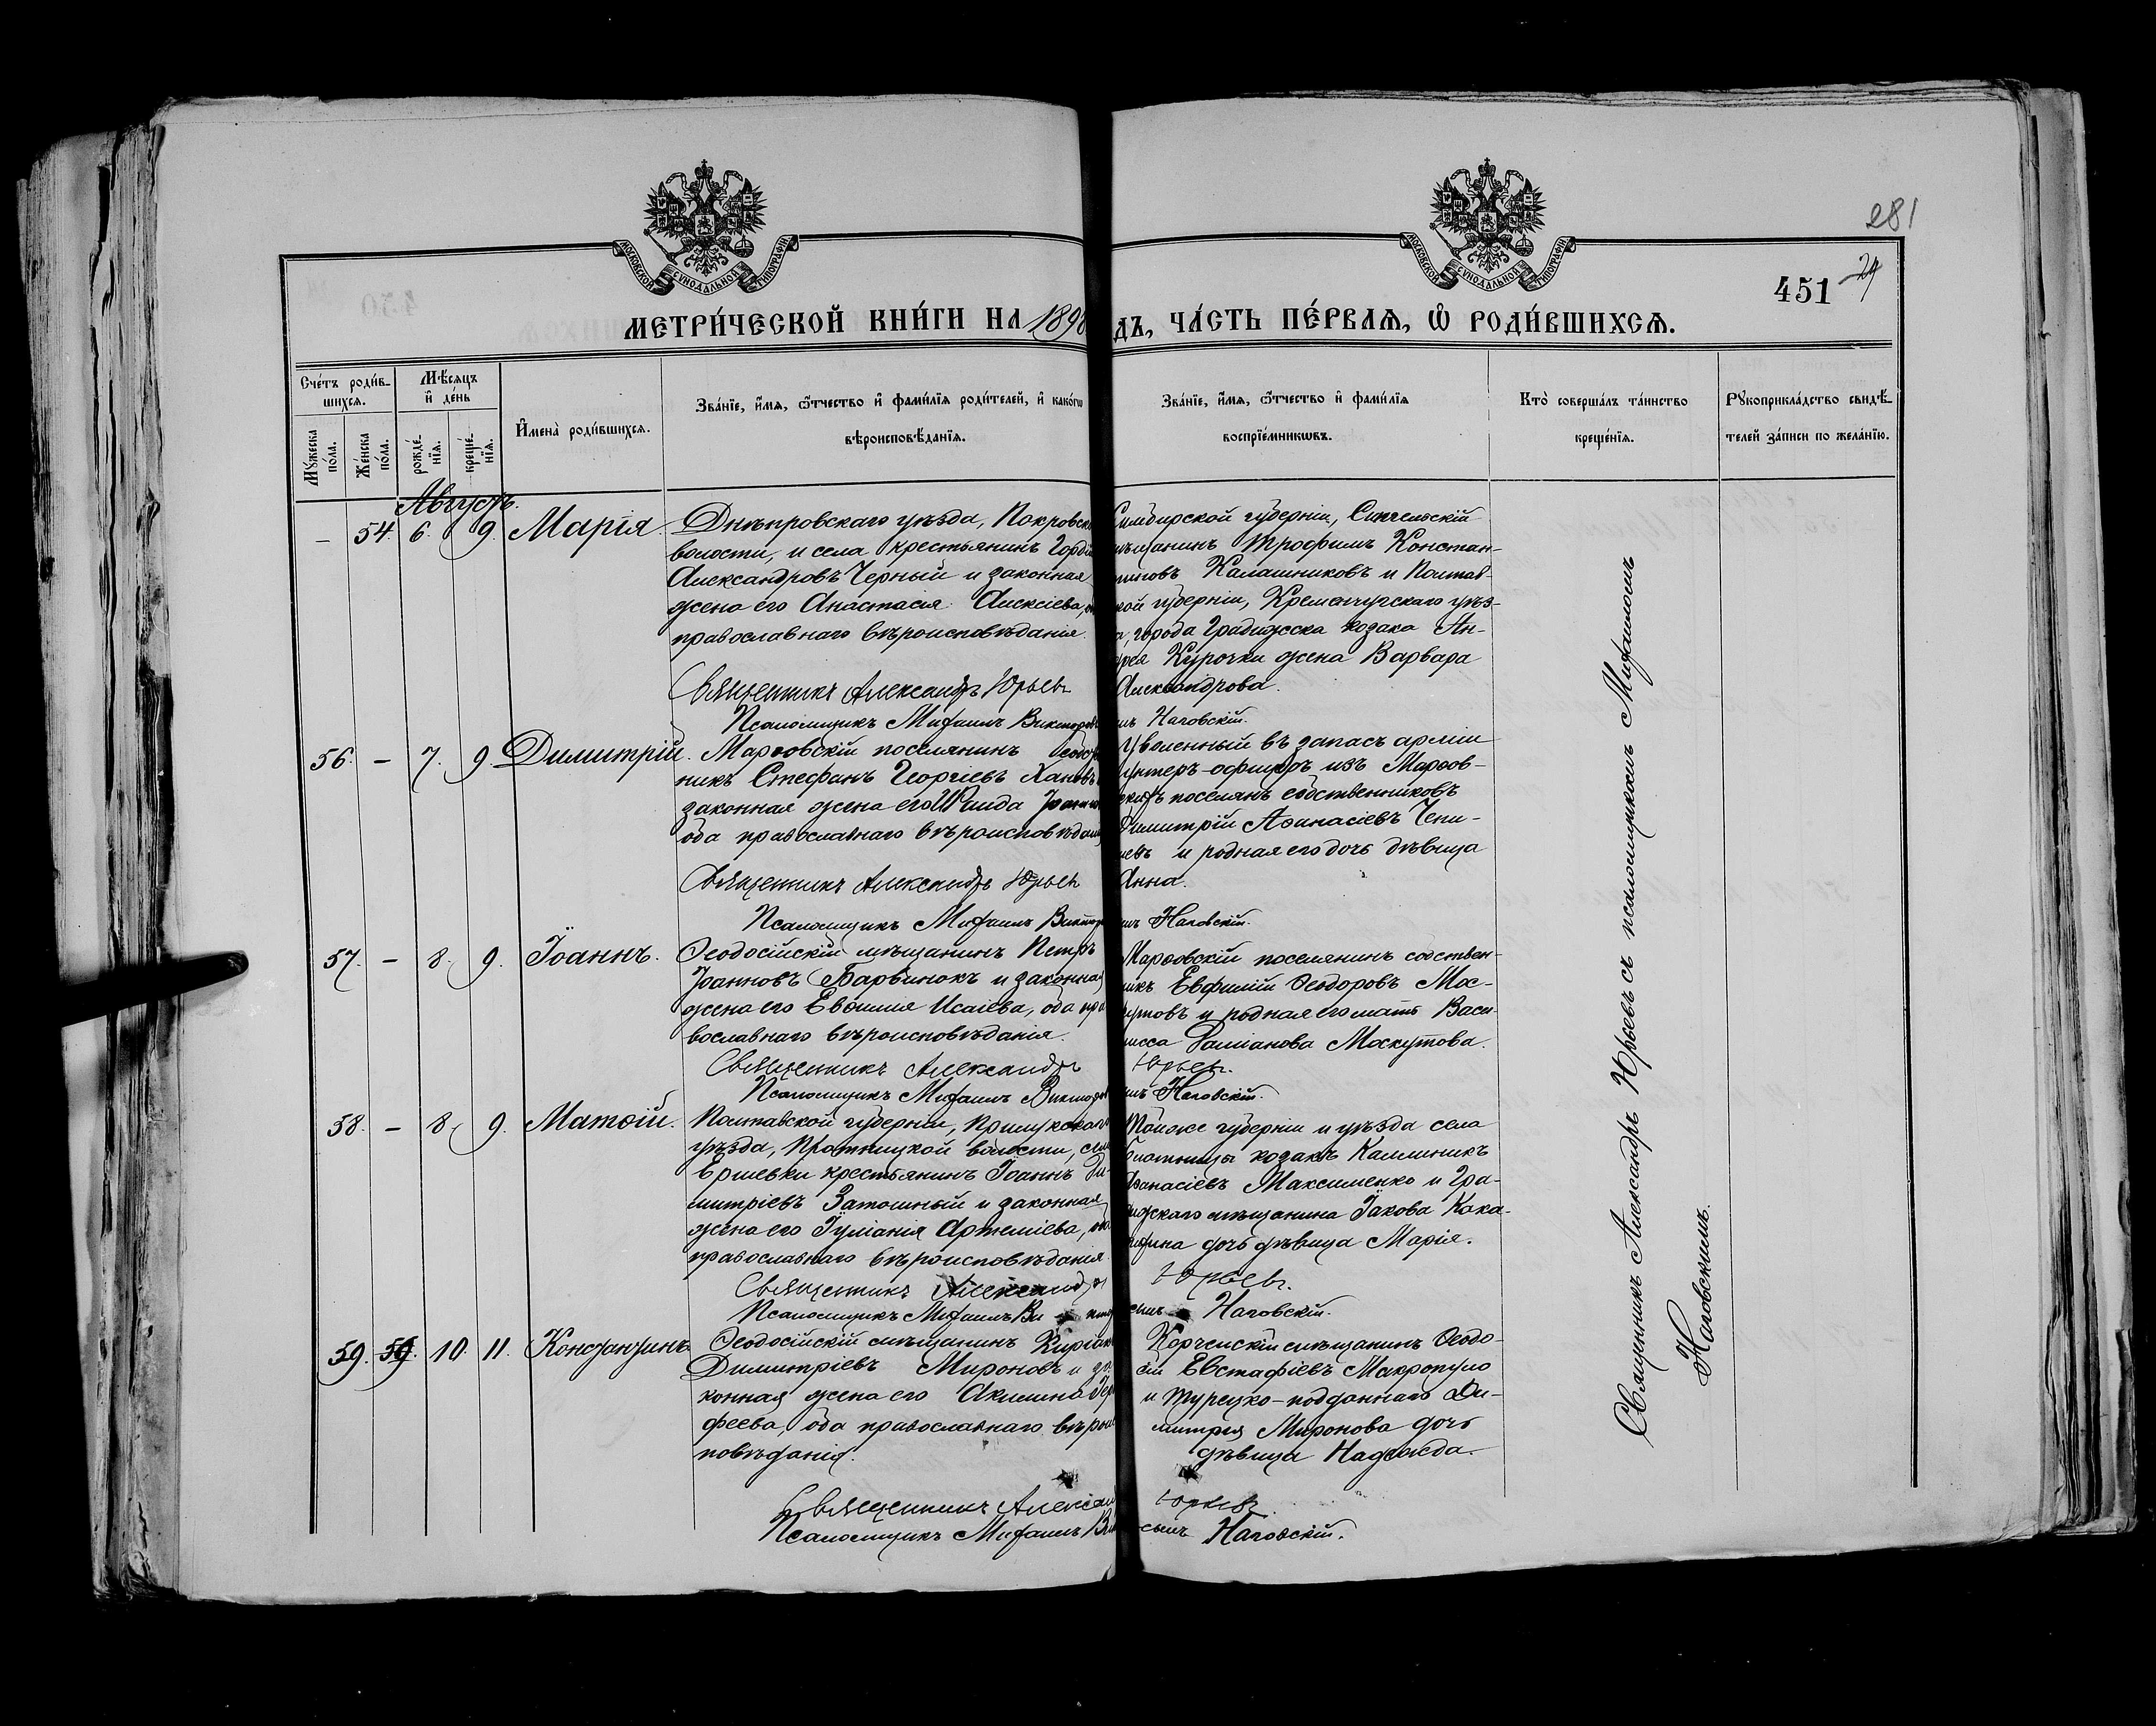 281
451 29
МОСКОВСКОЙ СѴНОДАЛЬНОЙ ТИПОГРАФІИ
МОСКОВСКОЙ СѴНОДАЛЬНОЙ ТИПОГРАФІИ
МЕТРИ́ЧЕСКОЙ КНИ́ГИ НА 1898
ДЪ, ЧА́СТЬ ПЕ́РВАѦ, Ѡ҆ РОДИ́ВШИХСѦ.
Сче́тъ роди́в-
шихсѧ.
Мꙋ́жеска
по́ла.
Же́нска
по́ла.
Мѣ́сѧцъ
и҆ де́нь
рожде́-
нїѧ.
креще́-
нїѧ.
И҆мена̀ роди́вшихсѧ.
Зва́нїе, и҆́мѧ, ѻ҆́тчество и҆ фами́лїѧ роди́телей, и҆ како́гѡ
вѣроисповѣ́данїѧ.
Зва́нїе, и҆́мѧ, ѻ҆́тчество и҆ фами́лїѧ
воспрїе́мникѡвъ.
Кто̀ соверша́лъ та́инство
креще́нїѧ.
Рꙋкоприкла́дство свидѣ́-
телей за́писи по жела́нїю.
Августъ.
– 54. 6. 9. Марія.
Днѣпровскаго уѣзда, Покровско
волости, и села крестьянинъ Горді
Александровъ Черный и законная
жена его Анастасія Алексіева, о
православнаго вѣроисповѣданія.
Священникъ Александръ Юрьевъ
Псаломщикъ Михаилъ Викторов
Симбирской губерніи,
мѣщанинъ Трофимъ Констан-
тиновъ Калашниковъ и Полтав-
кой губерніи, Кременчугскаго уѣз-
а, города Градижска козака Ан-
рея Курочки жена Варвара
Александрова.
Наговскій.
56. – 7. 9. Димитрій.
Марѳовскій поселянинъ собств
никъ Стефанъ Георгіевъ Хановъ
законная жена его Іоанно
оба православнаго вѣроисповѣдані
Священникъ Александръ Юрьевъ
Псаломщикъ Михаилъ Виктор
Уволенный въ запасъ арміи
унтеръ-офицеръ изъ Марѳов-
скихъ поселянъ собственниковъ
Димитрій Аѳанасіевъ Чепи-
евъ и родная его дочь дѣвица
Анна.
Наговскій.
57. – 8. 9. Іоаннъ.
Ѳеодосійскій мѣщанинъ Петръ
Іоанновъ Барвинокъ и законная
жена его Евѳимія Исаіева, оба пра
вославнаго вѣроисповѣданія.
Священникъ Александръ
Псаломщикъ Михаилъ Викторов
Марѳовскій поселянинъ собствен-
никъ Евфимій Ѳеодоровъ Мос-
кутовъ и родная его мать Васи-
лисса Даміанова Москутова.
Юрьевъ.
Наговскій.
58. – 8. 9. Матѳій.
Полтавской губерніи, Прилукскаго
уѣзда, волости, се
крестьянинъ Іоаннъ Ди-
митріевъ Затошный и законная
жена его Іуліанія Артеміева, об
православнаго вѣроисповѣданія.
Священникъ Александръ
Псаломщикъ Михаилъ Ви
Тойже губерніи и уѣзда села
козакъ Каллиникъ
Аѳанасіевъ Максименко и Гра-
дижскаго мѣщанина Іакова Кока-
рина дочь дѣвица Марія.
Юрьевъ.
Наговскій.
59. 59. 10. 11. Константинъ
Ѳеодосійскій мѣщанинъ Киріак
Димитріевъ Мироновъ и за-
конная жена его Акилина
феева, оба православнаго вѣроис
повѣданія.
Священникъ Алексан
Псаломщикъ Михаилъ Ви
Керченскій мѣщанинъ Ѳеодо-
сій Евстафіевъ Макропуло
и турецко-подданнаго Ди-
митрія Миронова дочь
дѣвица Надежда.
Юрьевъ.
Наговскій.
Священникъ Александръ Юрьевъ съ псаломщикомъ Михаиломъ
Наговскимъ.